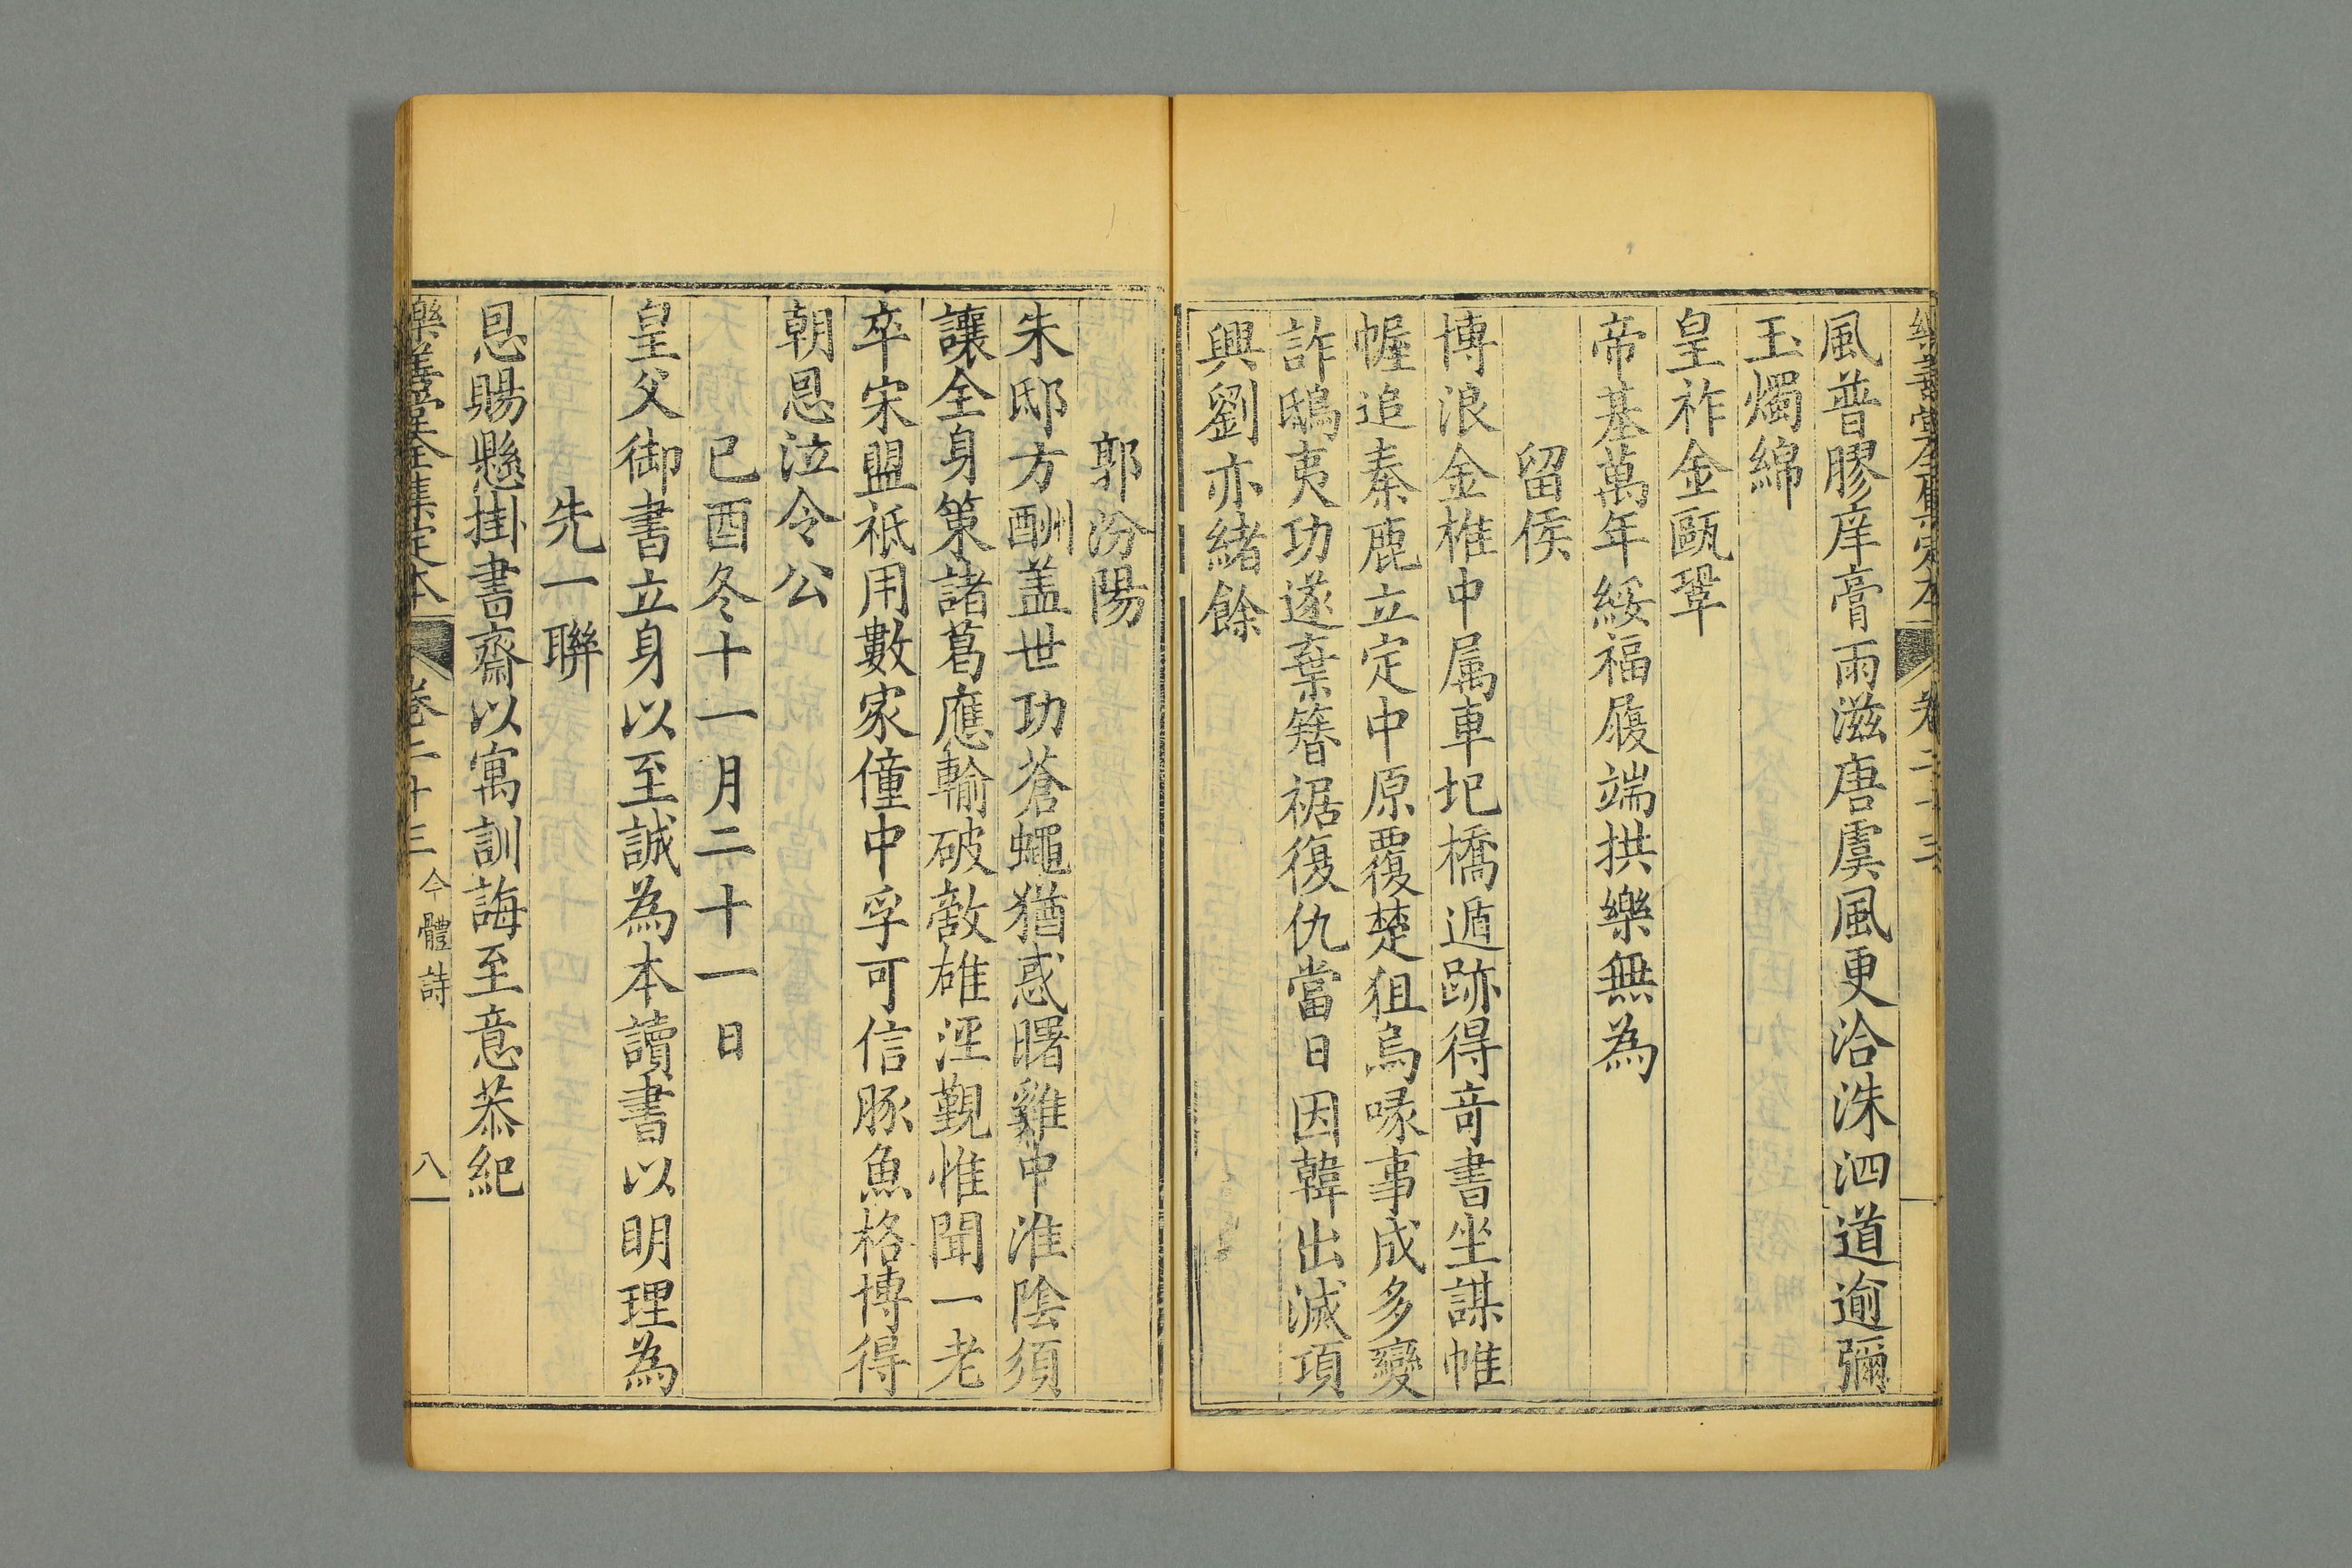 樂善堂全集定本 卷二十三
風普膠庠膏雨滋唐虞風更洽洙泗道逾彌
玉燭綿
皇祚金甌鞏
帝基萬年綏福履端拱樂無為
留侯
博浪金椎中属車圯橋遁跡得竒書坐謀帷
幄追秦鹿立定中原覆楚狙烏喙事成多變
詐鴟夷功遂棄簪裾復仇當日因韓出滅項
興劉亦緒餘
郭汾陽
朱邸方酬盖世功蒼蠅猶惑曙雞中淮陰須
讓全身策諸葛應輸破敵雄涇觐惟聞一老
卒宋盟祗用數家僮中孚可信豚魚格博得
朝恩泣令公
已酉冬十一月二十一日
皇父御書立身以至誠為本讀書以明理為
先一聯
恩賜懸掛書齋以寓訓誨至意恭紀
樂善堂全集定本 卷二十三 今體詩 八